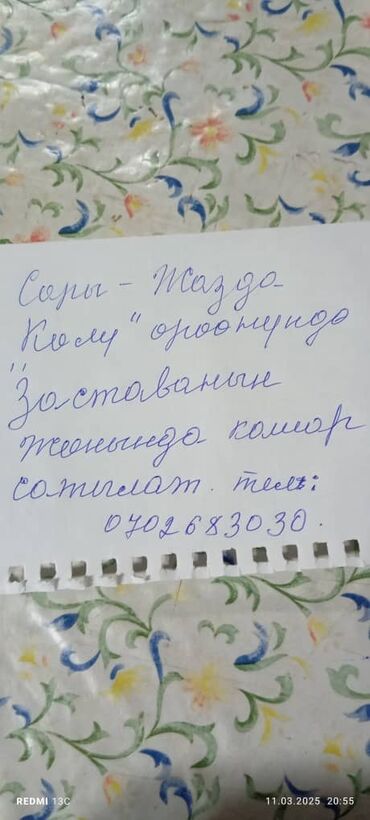 Сары - Жазда
"Колу" ороонундо
Заставанын
жанында кашар
сатылат. тел:
0702683030.
REDMI 13C
11.03.2025 20:55